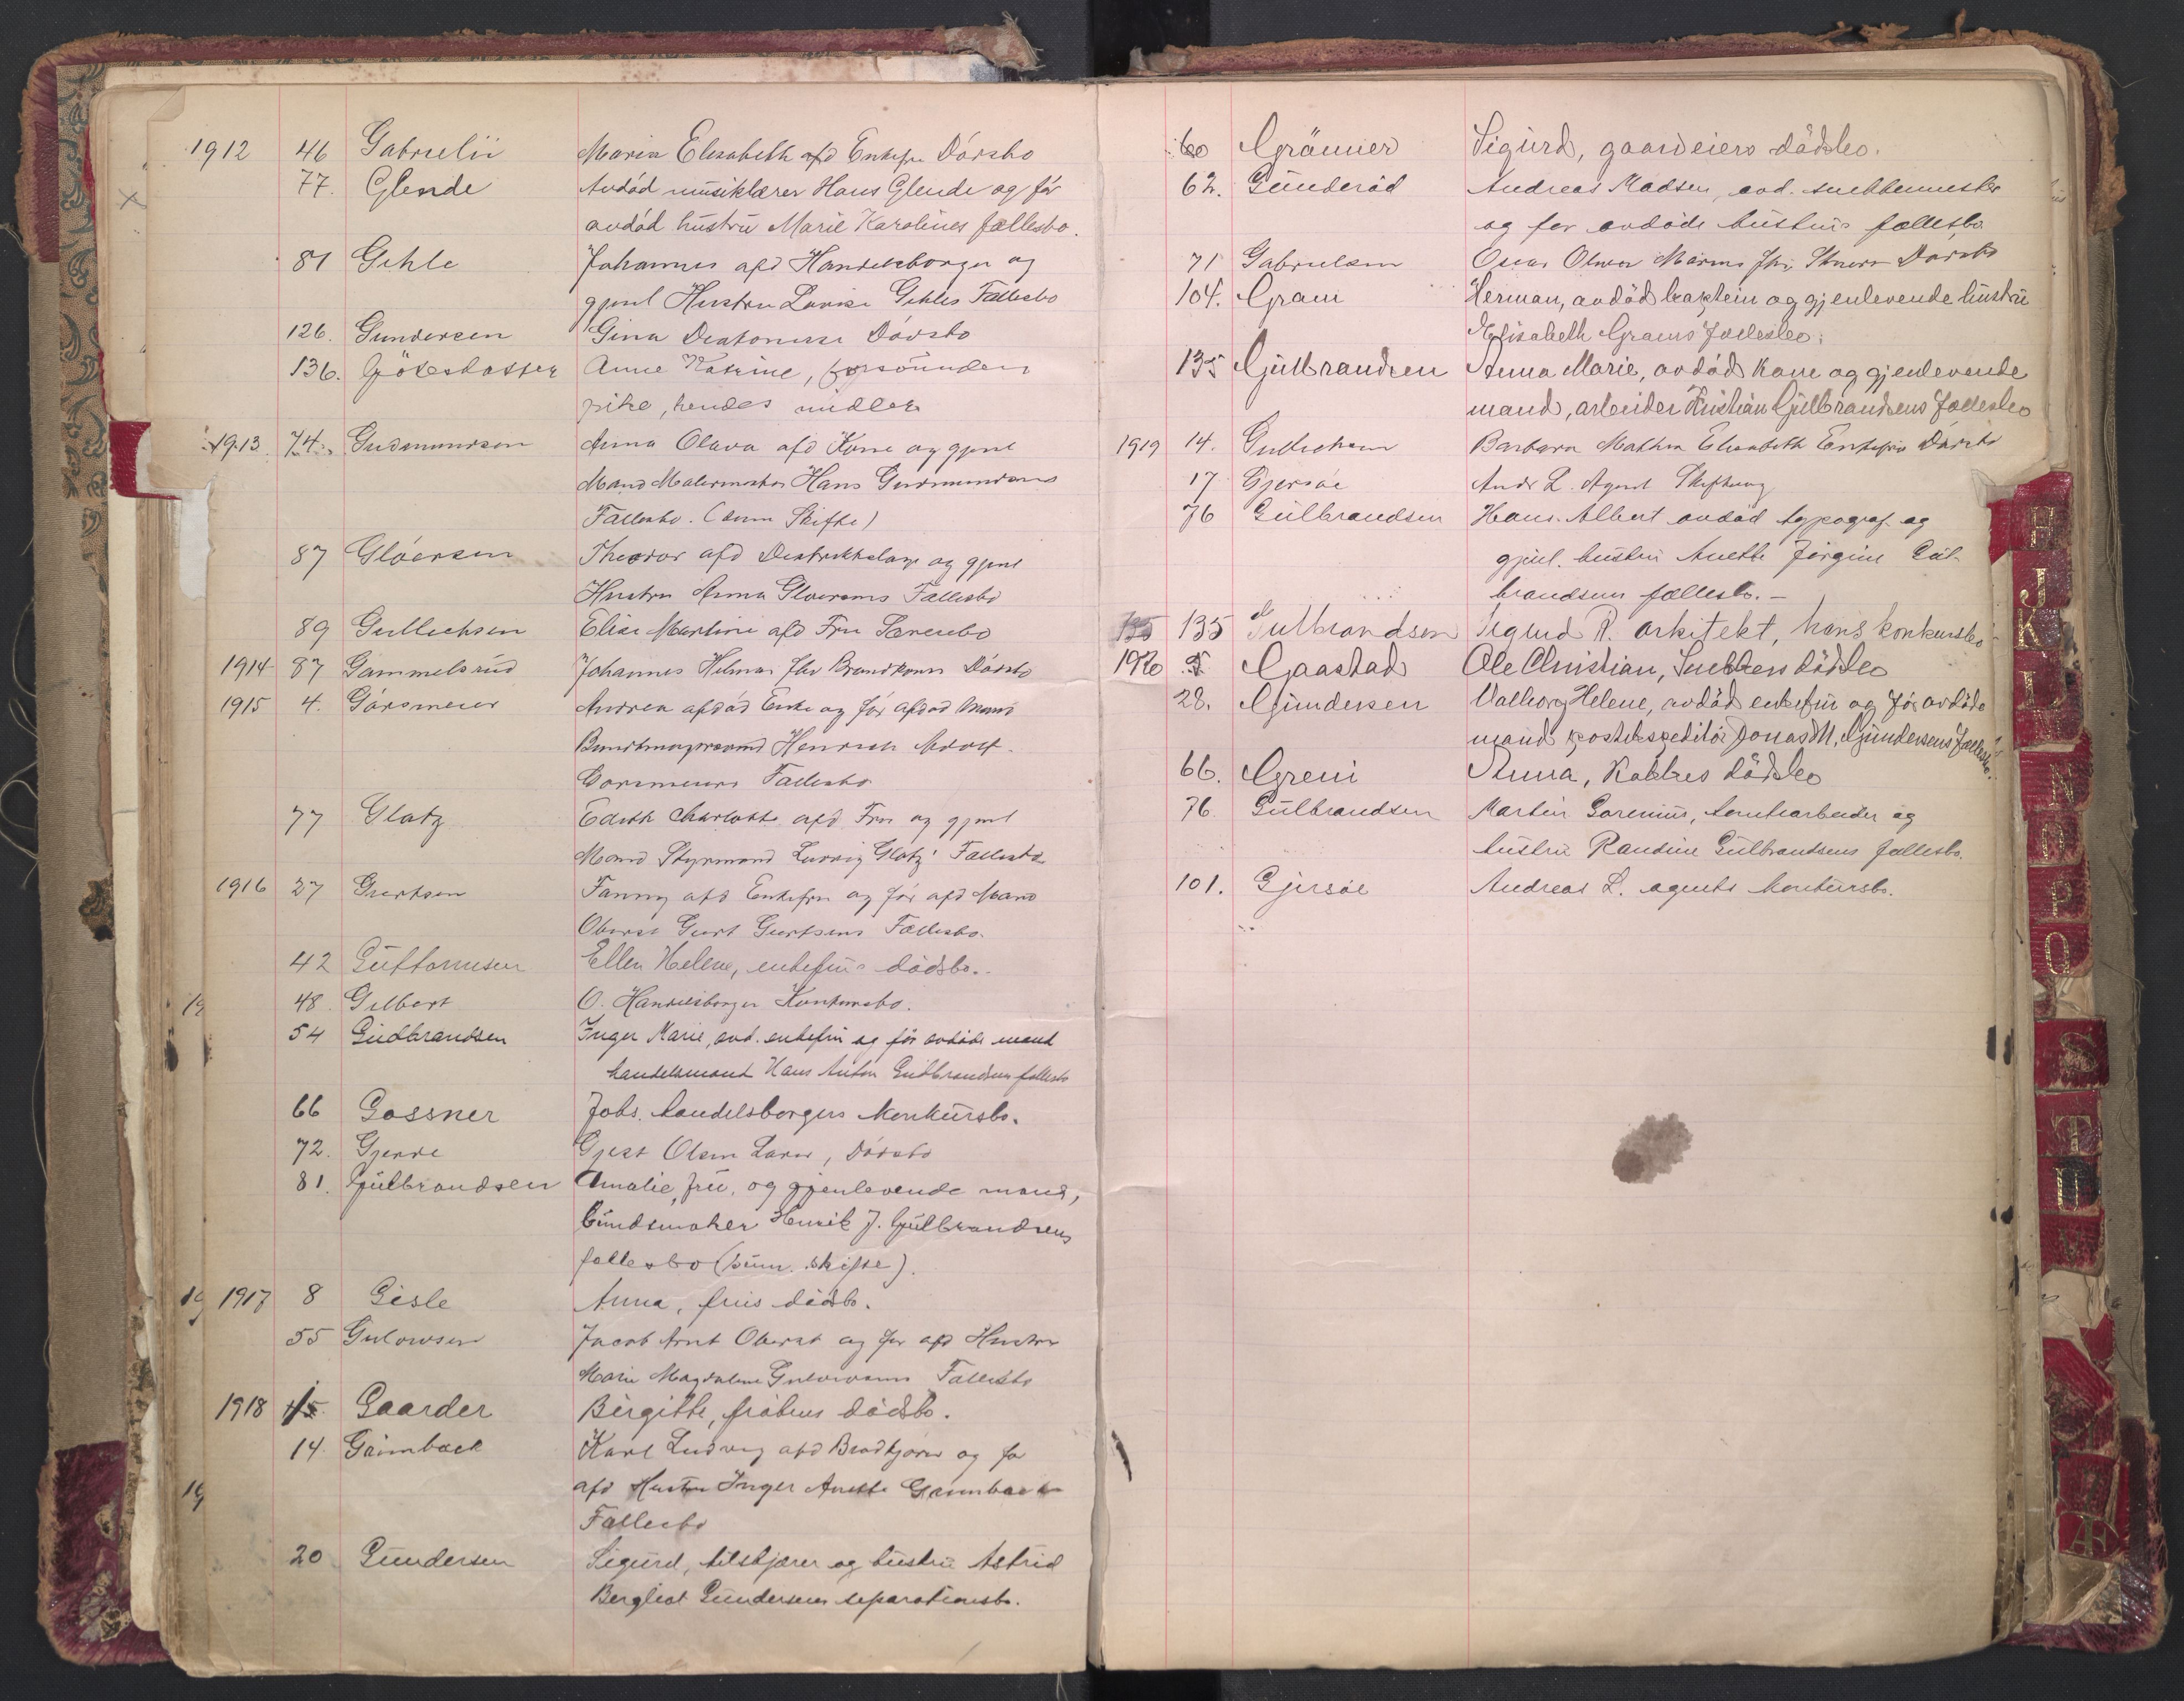 1912 46 Gabrielii Maria Elisabeth afd Enkefru Dödsbo
77. Glende Avdöd musiklærer Hans Glende og för
avdöd hustru Marie Karolines fællesbo.
81 Gehle Johannes afd Handelsborger og
gjenl Hustru Lovise Gehles Fællesbo
126. Gundersen Gina Diakonisse Dödsbo
136. Anne Katrine, forsvunden
pike, hendes midler
1913 74. Gudmundsen Anna Olava afd Kone og gjenl
Mand Malermester Hans Gudmundsens
Fællesbo. (Summ Skifte)
87 Glöersen Theodor afd Distriktslæge og gjenl
Hustru Anna Gloersens Fællesbo
89 Gullichsen Elise Martine afd Fru Særeiebo
1914 87 Gammelsrud Johannes Hilmar Dödsbo
1915 4. Görsmeier Andrea afdöd Enke og för afdöd Mand
Henrich Adolf
Fællesbo
77 Glatz Edith Charlotte afd Fru og gjenl
Mand Styrmand Ludvig Glatz' Fællesbo
1916 27 Geertsen Fanny afd Enkefru og för afd Mand
Oberst Geert Geertsens Fællesbo.
42 Guttormsen Ellen Helene, enkefrus dödsbo.
48. Gilbert O. Handelsborger Konkursbo.
54 Gudbrandsen Inger Marie, avd. enkefru og för avdöde mand
handelsmand Hans Anton Gudbrandsens fællesbo
66 Gossner Johs. handelsborgers konkursbo.
72. Gjerde Gjest Olsen Lærer, Dödsbo
81. Gulbrandsen Amalie, fru, og gjenlevende mand,
bundtmaker Henrik J. Gulbrandsens
fællesbo (summ. skifte).
1917 8 Gisle Anna, frus dödsbo.
55 Gulowsen Jacob Arnt Oberst og för afd Hustru
Marie Magdalene Gulowsens Fællesbo
1918 Gaarder Birgitte, frökens dödsbo.
14. Karl Ludvig afd og for
afd Hustru Inger Anette
Fællesbo
20 Gundersen Sigurd, tilskjærer og hustru Astrid
Bergliot Gundersens separationsbo.
60 Grännes Sigurd, gaardeiers dödsbo.
62. Gunderöd Andreas Madsen, avd. snekkermester
og for avdöde hustrus fællesbo
71 Gabrielsen Oscar Oliver Dödsbo
104. Gram Herman, avdöd kaptein og gjenlevende hustru
Elisabeth Grams Fællesbo.
135 Gulbrandsen Anna Marie, avdöd kone og gjenlevende
mand, arbeider Kristian Gulbrandsens Fællesbo
1919 14. Gullichsen Barbara Mathea Elisabeth Enkefru Dödsbo
17 Gjersöe Andr L. Agent
76 Gulbrandsen Hans Albert avdöd typograf og
gjenl. hustru Anette Jörgine Gul-
brandsens fællesbo. –
135 135 Gulbrandsen Sigurd R. arkitekt, hans konkursbo
1920 5 Gaastad Ole Christian, Snekkers dödsbo
28. Gundersen Valborg Helene, avdöd enkefru og för avdöde
mand postekspeditör Jonas M. Gundersens Fællesbo.
66. Greni Anna, Kokkes dödsbo
76. Gulbrandsen Martin Sorenius, tomtearbeider og
hustru Randine Gulbrandsens fællesbo.
101. Gjersöe Andreas L. agents konkursbo.
H
J
K
L
N
O
P
Q
S
T
U